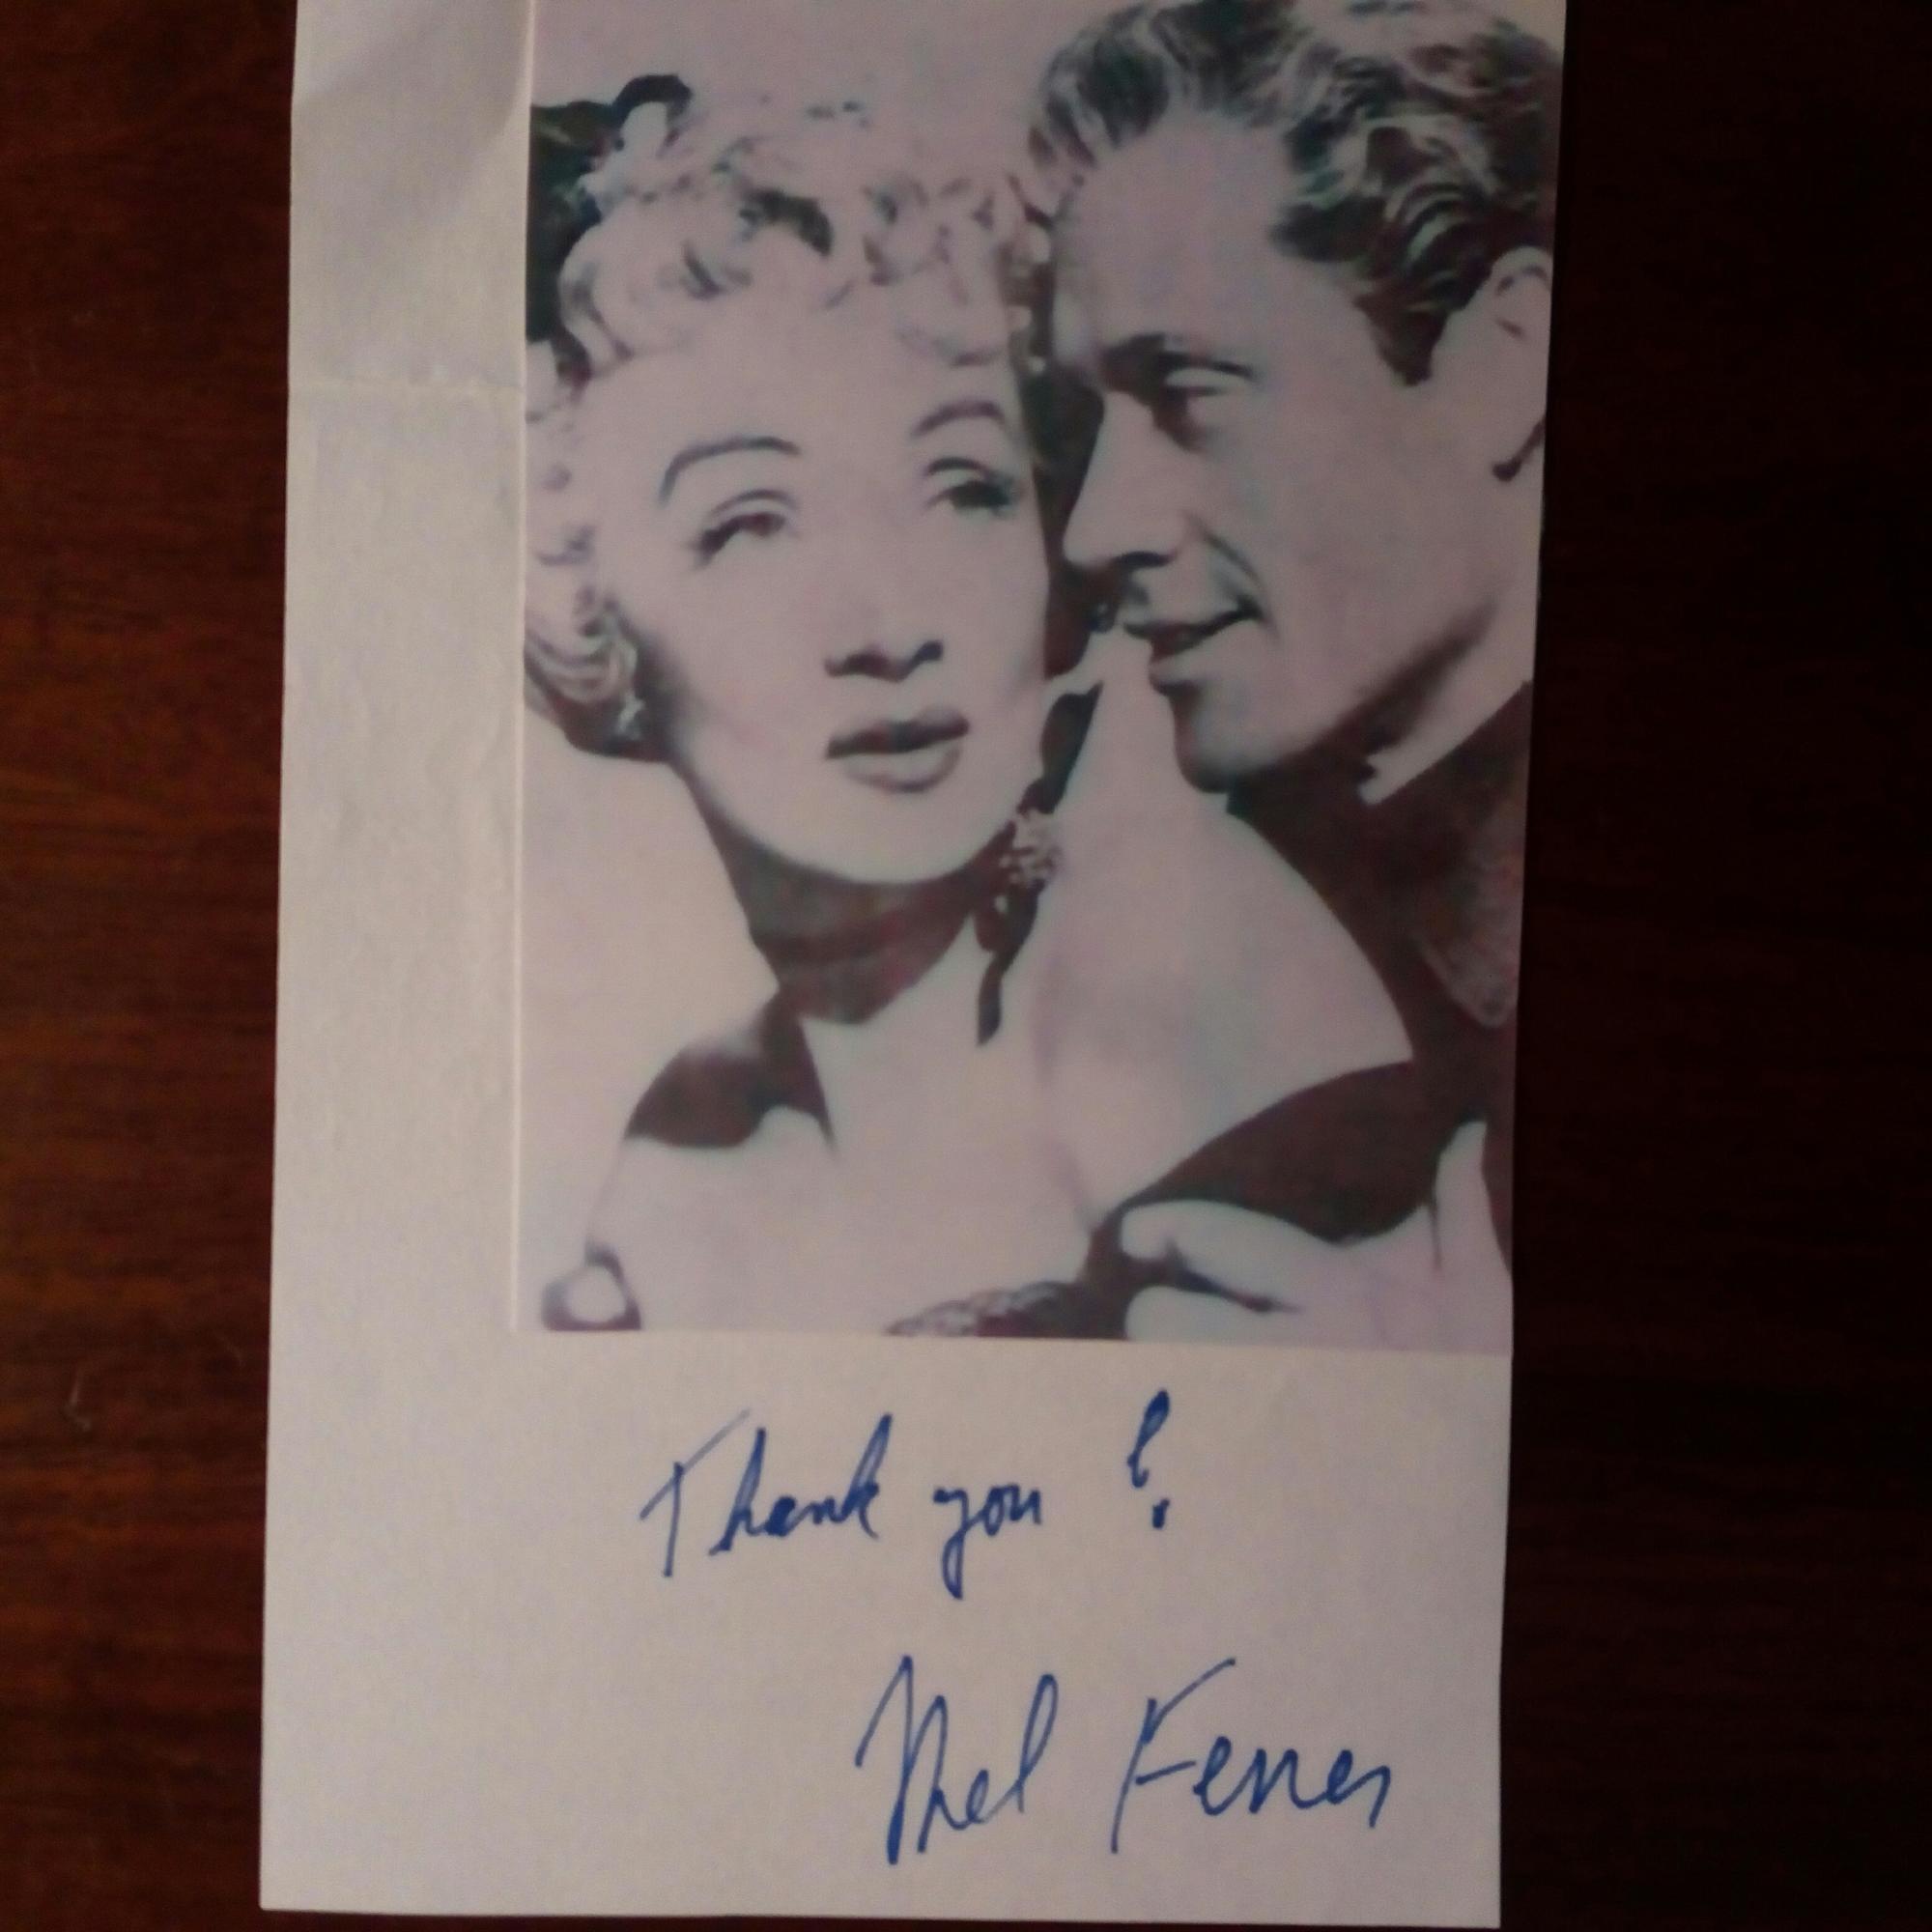 Thank you !
Mel Ferrer